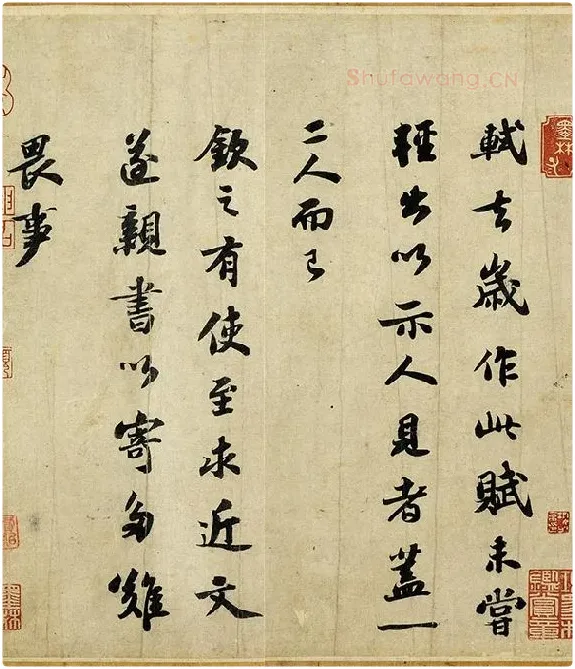 軾去歲作此賦未嘗
輕出以示人見者蓋一
二人而已
欽之有使至求近文
遂親書以寄多難
畏事
Shufawang.CN